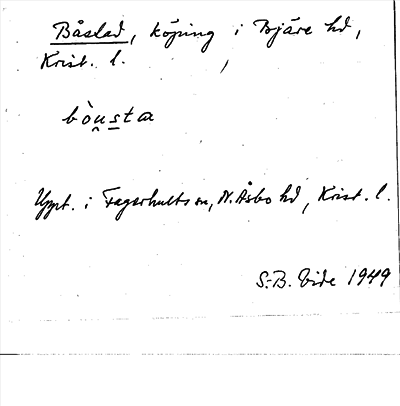 Båstad, köping i Bjäre hd,
Krist. l.
bòu̯s̲ta
Uppt. i Fagerhults sn, N. Åsbo hd, Krist. l.
S.-B. Vide 1949